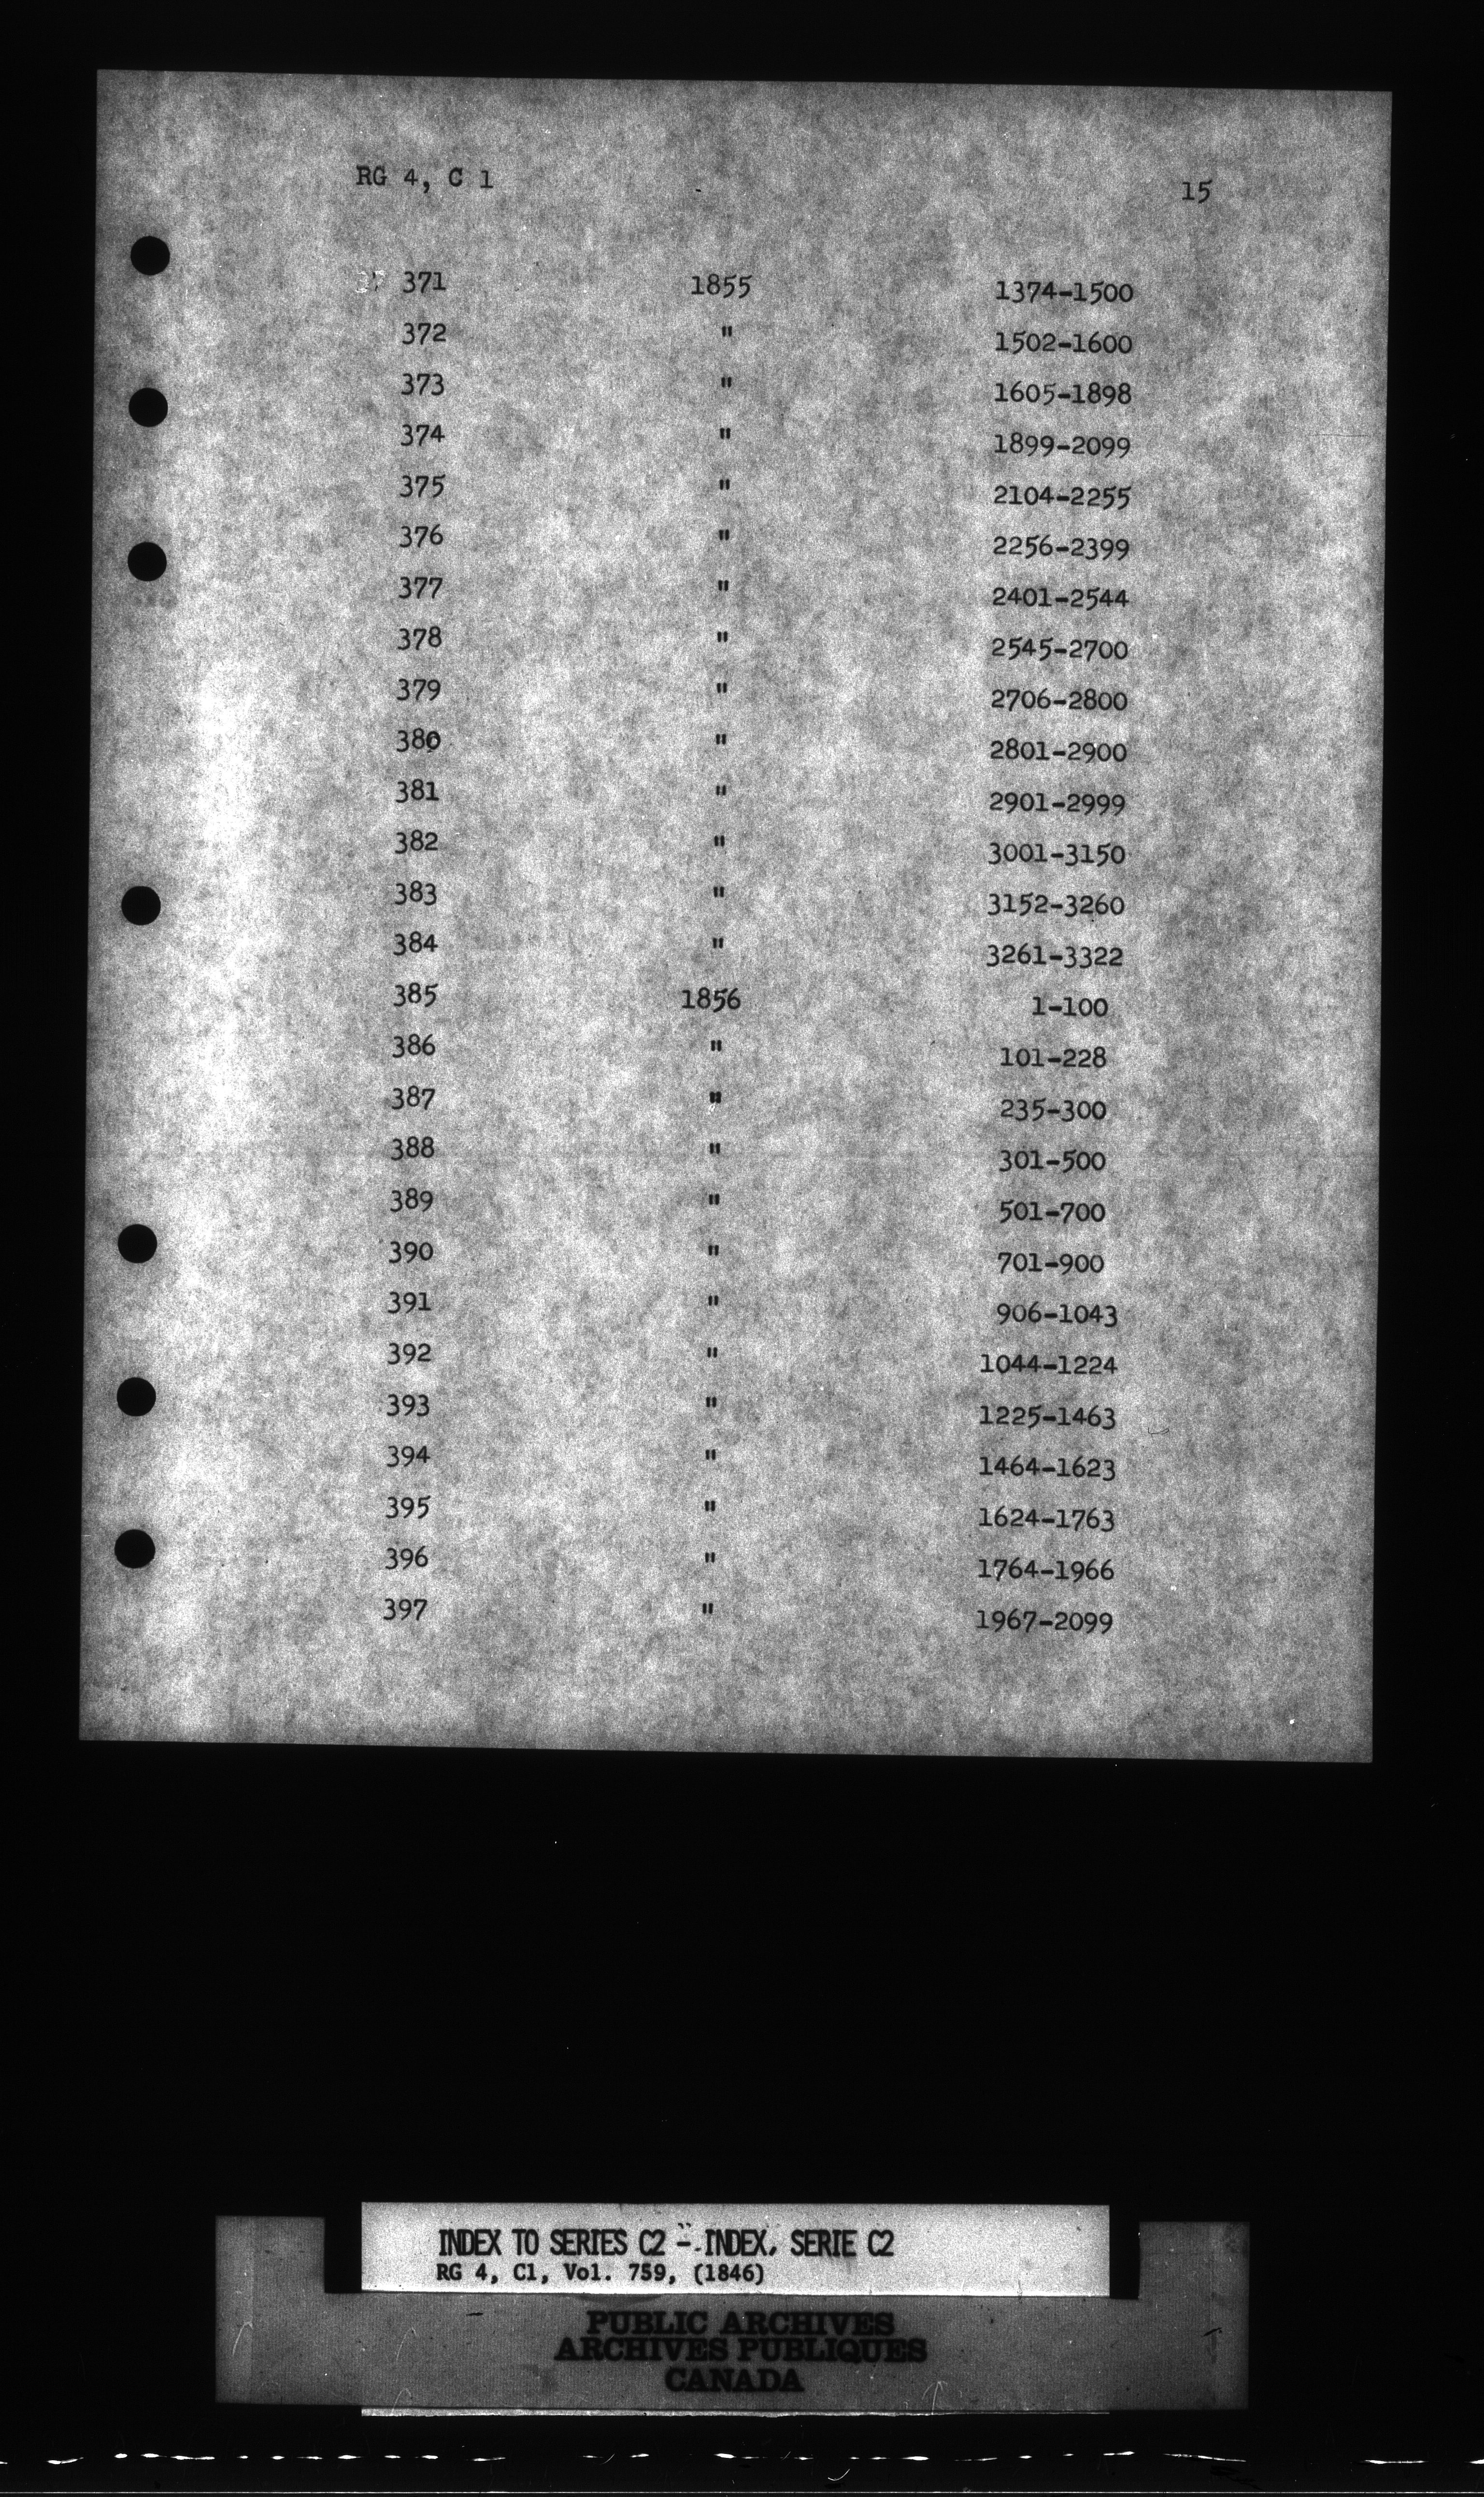 RG 4, C 1 15
371 1855 1374-1500
372 " 1502-1600
373 " 1605-1898
374 " 1899-2099
375 " 2104-2255
376 " 2256-2399
377 " 2401-2544
378 " 2545-2700
379 " 2706-2800
380 " 2801-2900
381 " 2901-2999
382 " 3001-3150
383 " 3152-3260
384 " 3261-3322
385 1856 1-100
386 " 101-228
387 " 235-300
388 " 301-500
389 " 501-700
390 " 701-900
391 " 906-1043
392 " 1044-1224
393 " 1225-1463
394 " 1464-1623
395 " 1624-1763
396 " 1764-1966
397 " 1967-2099
INDEX TO SERIES C2 - INDEX, SERIE C2
RG 4, C1, Vol. 759, (1846)
PUBLIC ARCHIVES
ARCHIVES PUBLIQUES
CANADA